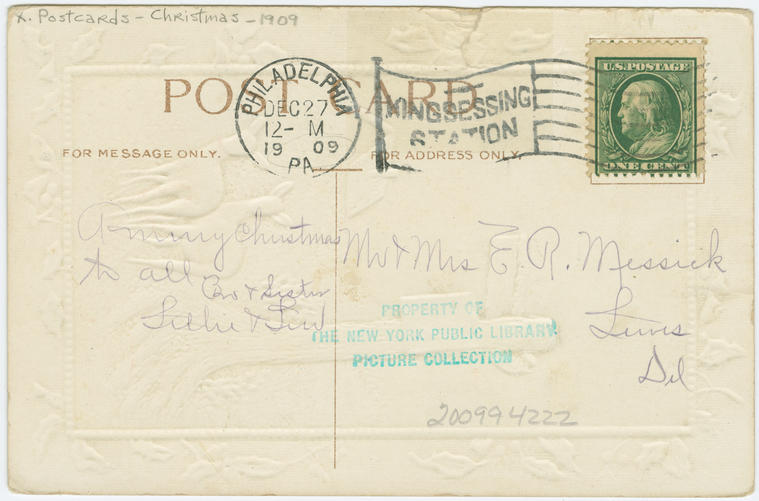 X. Postcards - Christmas - 1909
POST CARD
PHILADELPHIA
DEC 27
12- M
19 09
PA
KINGSESSING
STATION
U.S. POSTAGE
ONE CENT
FOR MESSAGE ONLY.
FOR ADDRESS ONLY.
A merry Christmas
to all
Bro & Sister
Lillie &
Mr & Mrs E. R. Messick
Lewes
Del
PROPERTY OF
THE NEW YORK PUBLIC LIBRARY
PICTURE COLLECTION
200994222